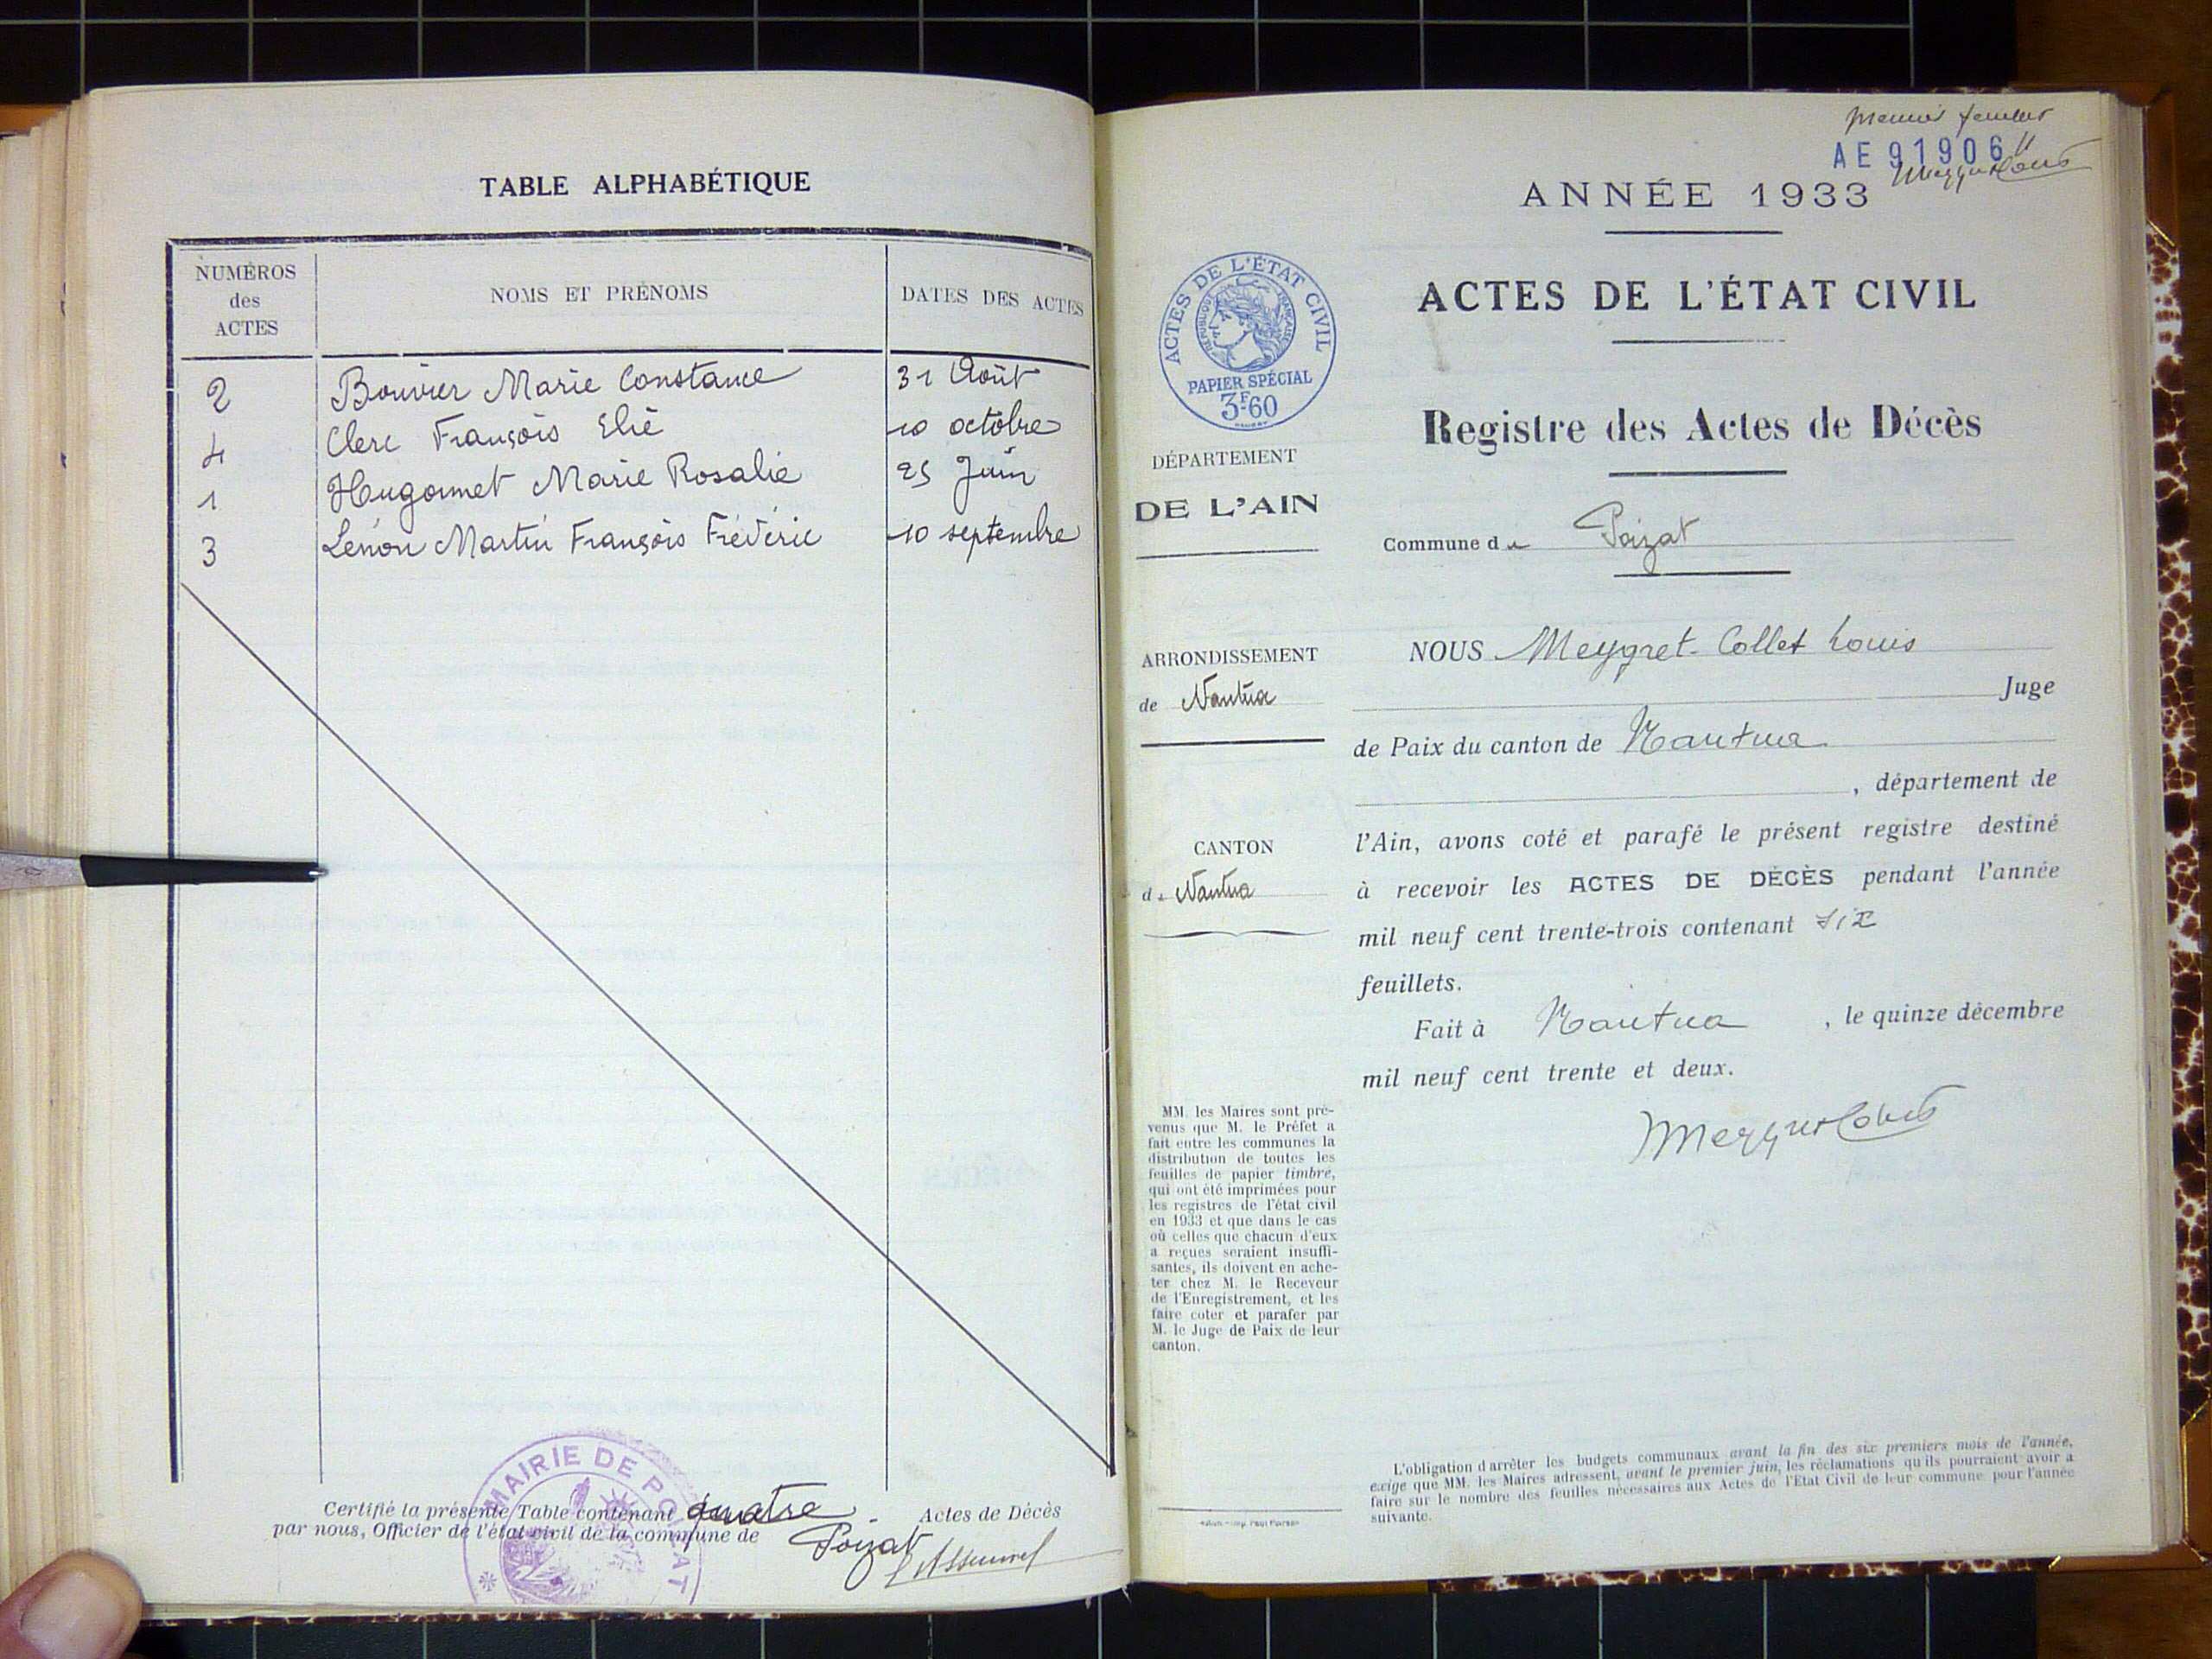 TABLE ALPHABÉTIQUE
NUMÉROS
des
ACTES
NOMS ET PRÉNOMS
DATES DES ACTES
2 Bouvier Marie Constance 31 Août
4 Clerc François Elie 10 octobre
1 Hugonnet Marie Rosalie 25 Juin
3 Lénon Martin François Frédéric 10 septembre
MAIRIE DE POIZAT
Certifié la présente Table contenant quatre Actes de Décès
par nous, Officier de l'état civil de la commune de Poizat
premier feuillet
AE 91906
ANNÉE 1933
ACTES DE L'ÉTAT CIVIL
RÉPUBLIQUE FRANÇAISE
PAPIER SPÉCIAL
3F60
DÉPARTEMENT
DE L'AIN
ARRONDISSEMENT
de Nantua
CANTON
de Nantua
MM. les Maires sont pré-
venus que M. le Préfet a
fait entre les communes la
distribution de toutes les
feuilles de papier timbre,
qui ont été imprimées pour
les registres de l'état civil
en 1933 et que dans le cas
où celles que chacun d'eux
a reçues seraient insuffi-
santes, ils doivent en ache-
ter chez M. le Receveur
de l'Enregistrement, et les
faire coter et parafer par
M. le Juge de Paix de leur
canton.
ACTES DE L'ÉTAT CIVIL
Registre des Actes de Décès
Commune de Poizat
NOUS Meygret-Collet Louis
Juge
de Paix du canton de Nantua
, département de
l'Ain, avons coté et parafé le présent registre destiné
à recevoir les ACTES DE DÉCÈS pendant l'année
mil neuf cent trente-trois contenant six
feuillets.
Fait à Nantua, le quinze décembre
mil neuf cent trente et deux.
L'obligation d'arrêter les budgets communaux avant la fin des six premiers mois de l'année,
exige que MM. les Maires adressent, avant le premier juin, les réclamations qu'ils pourraient avoir à
faire sur le nombre des feuilles nécessaires aux Actes de l'Etat Civil de leur commune pour l'année
suivante.